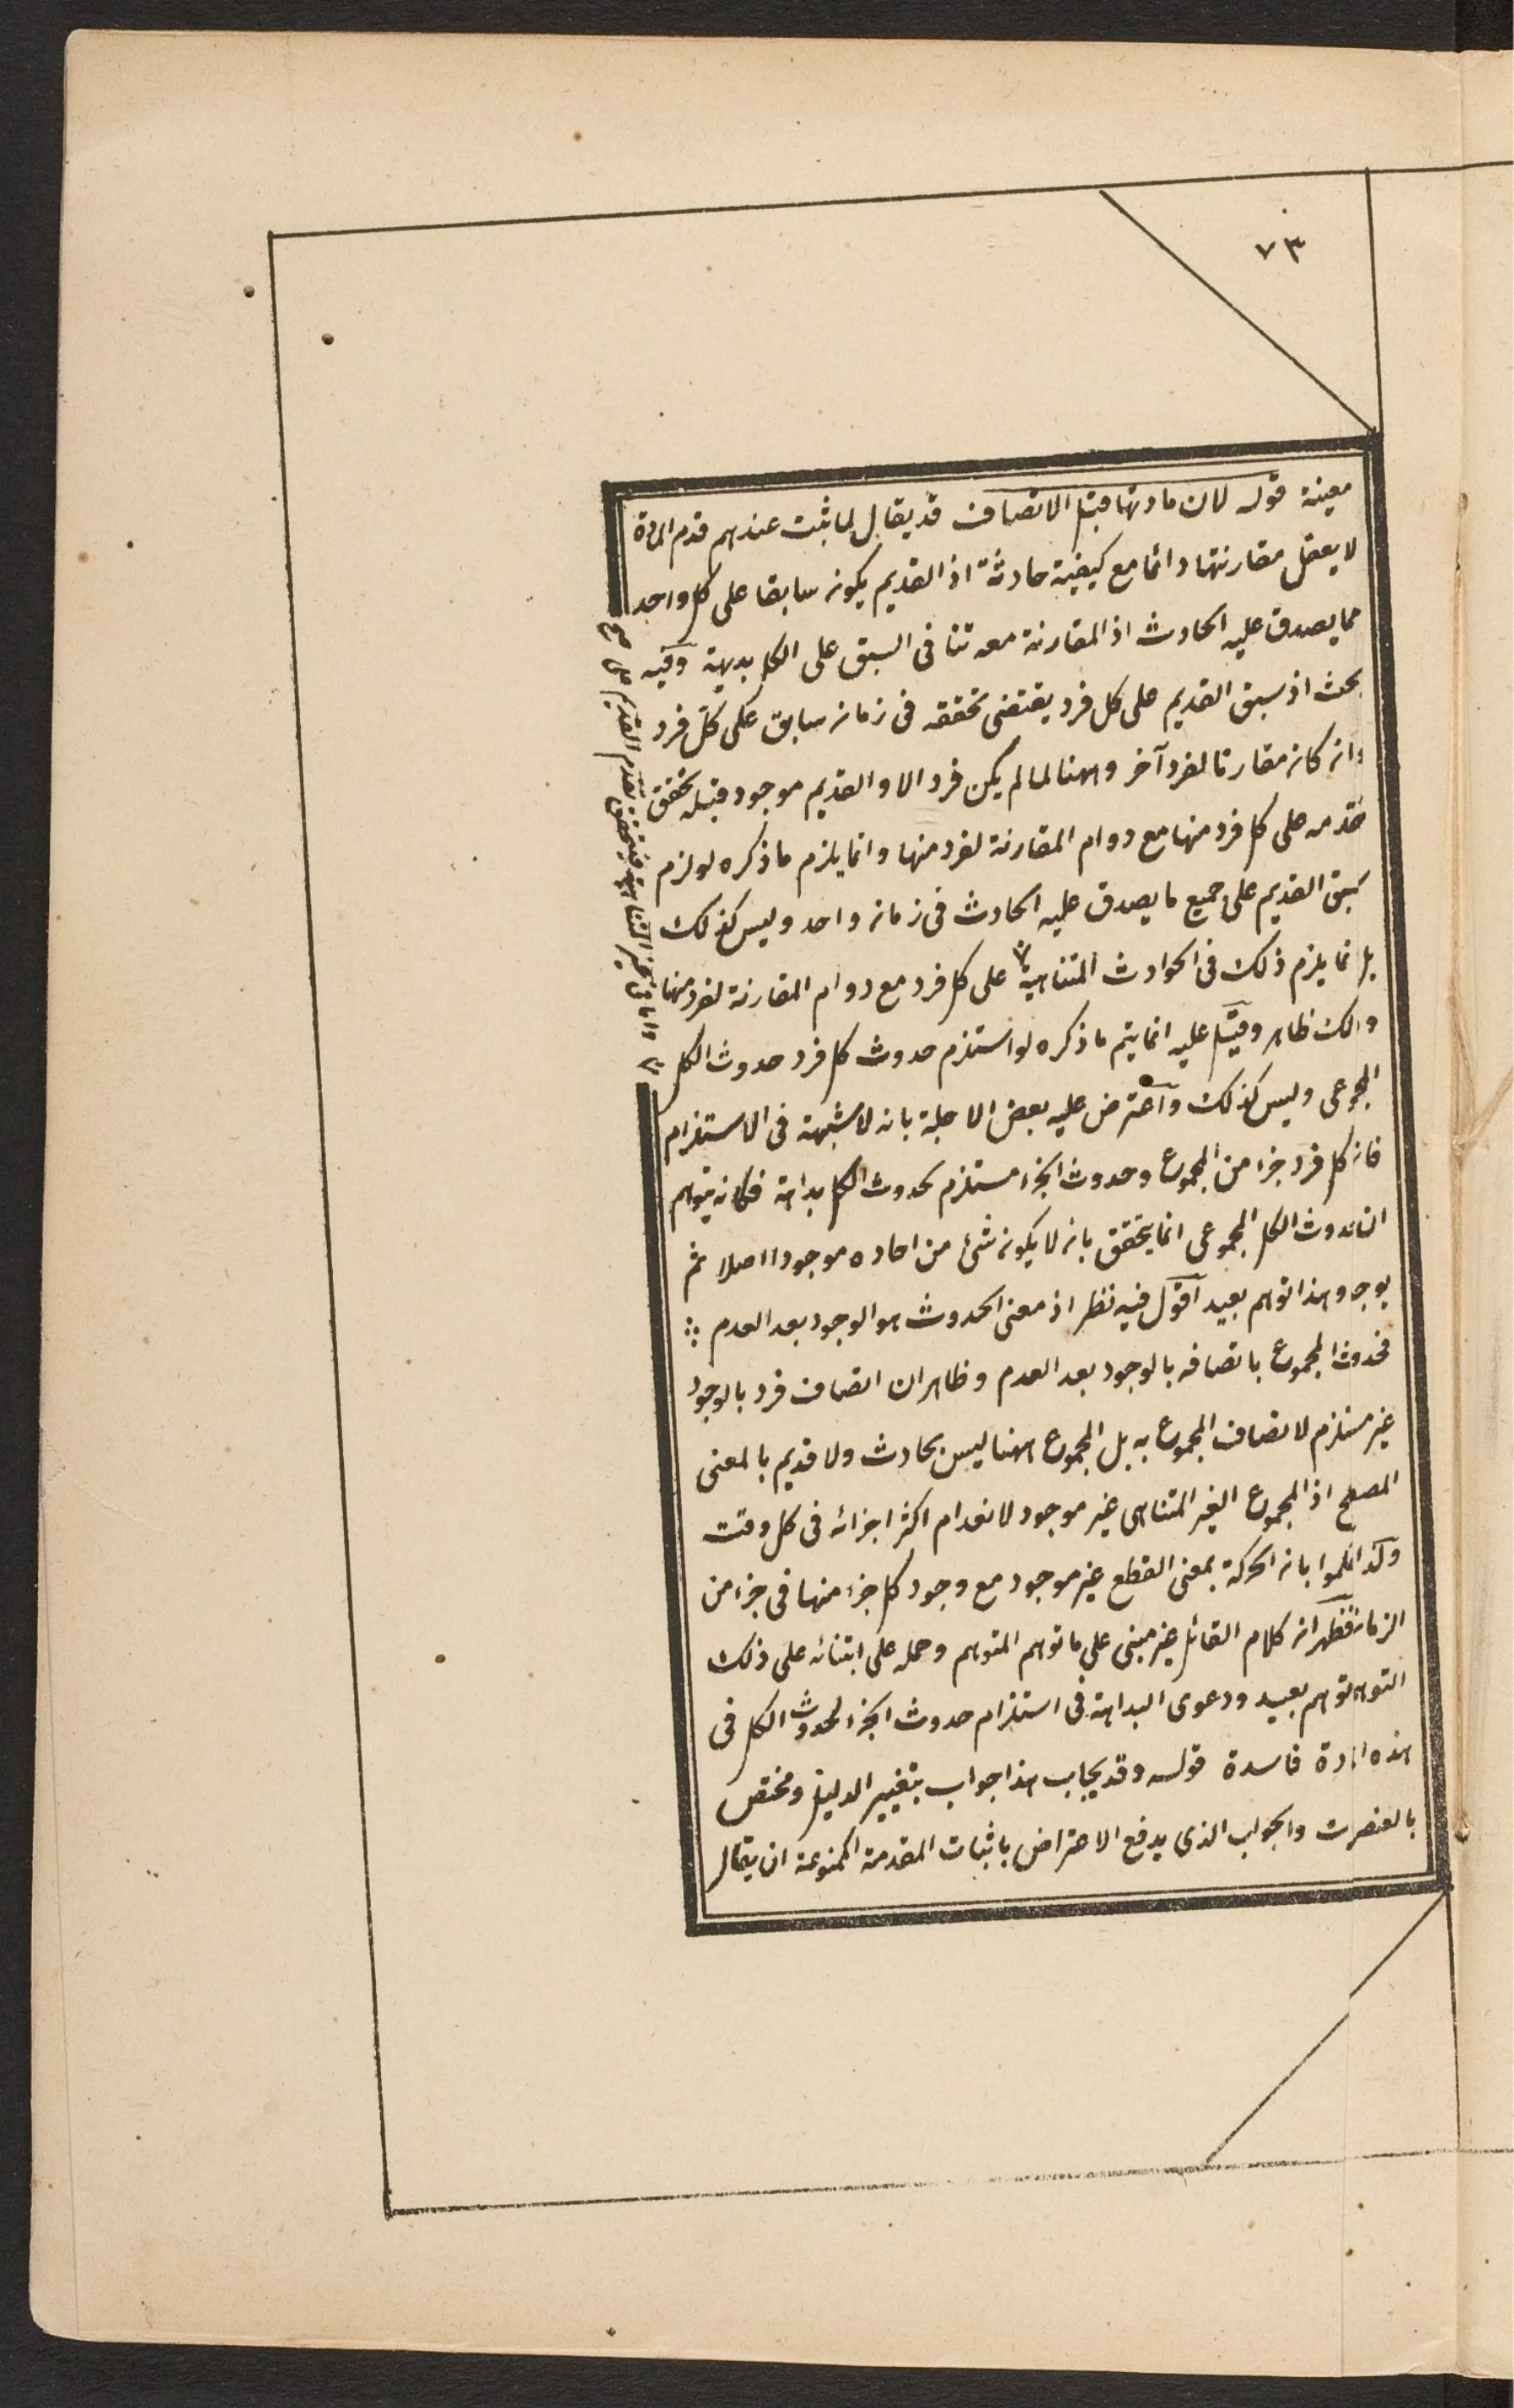 ٧٣
معينة قوله لان مادتها قبل الاتصاف قد يقال لما ثبت عندهم قدم المادة
لا يعقل مقارنتها دائما مع كيفية حادثة اذ القديم يكون سابقا على كل واحد
مما يصدق عليه الحادث اذ المقارنة معه تنافى السبق على الكل بديهة وفيه
بحث اذ سبق القديم على كل فرد يقتضى تحققه فى زمان سابق على كل فرد
وان كان مقارنا لفرد آخر وههنا لما لم يكن فرد الا والقديم موجود قبله تحقق
تقدمه على كل فرد منها مع دوام المقارنة لفرد منها وانما يلزم ما ذكره لو لزم
سبق القديم على جميع ما يصدق عليه الحادث فى زمان واحد وليس كذلك
بل انما يلزم ذلك فى الحوادث المتناهية على كل فرد مع دوام المقارنة لفرد منها
وذلك ظاهر وقيل عليه انما يتم ما ذكره لو استلزم حدوث كل فرد حدوث الكل
المجموعى وليس كذلك واعترض عليه بعض الاجلة بانه لا شبهة فى الاستلزام
فان كل فرد جزء من المجموع وحدوث الجزء مستلزم لحدوث الكل بداهة فكانه يتوهم
الحدوث الكل المجموعى انما يتحقق بان لا يكون شئ من احاده موجودا اصلا ثم
يوجد وهذا توهم بعيد اقول فيه نظر اذ معنى الحدوث هو الوجود بعد العدم
فحدوث المجموع باتصافه بالوجود بعد العدم وظاهر ان اتصاف فرد بالوجود
غير مستلزم لاتصاف المجموع به بل المجموع ههنا ليس بحادث ولا قديم بالمعنى
المصطلح اذ المجموع الغير المتناهى غير موجود لانعدام اكثر اجزائه فى كل وقت
وكذا حكموا بان الحركة بمعنى القطع غير موجود مع وجود كل جزء منها فى جزء من
الزمان فظهر ان كلام القائل غير مبنى على ما توهم المتوهم وحمله على ابتنائه على ذلك
التوهم توهم بعيد ودعوى البداهة فى استلزام حدوث الجزء لحدوث الكل فى
هذه المادة فاسدة قوله وقد يجاب هذا جواب بتغيير الدليل ومختص
بالعنصريات والجواب الذى يدفع الاعتراض باثبات المقدمة الممنوعة ان يقال
واما فى غير المتناهية فيتحقق تقدم القديم على صح